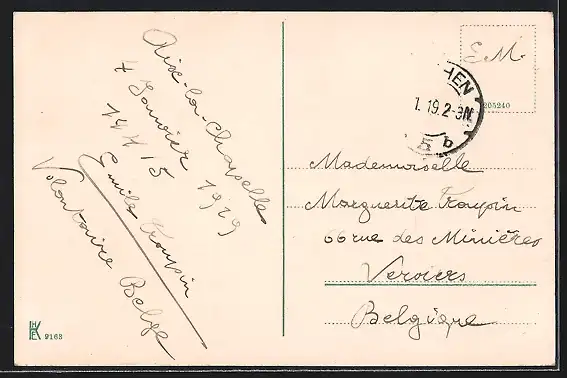 Aix-la-Chapelle
4 Janvier 1919
14 h 15
Emile Fraupin
Volontaire Belge
HKE
9163
E.M.
205240
HEN
1.19.2-3N.
b
Mademoiselle
Marguerite Fraupin
66 rue des Minières
Verviers
Belgique